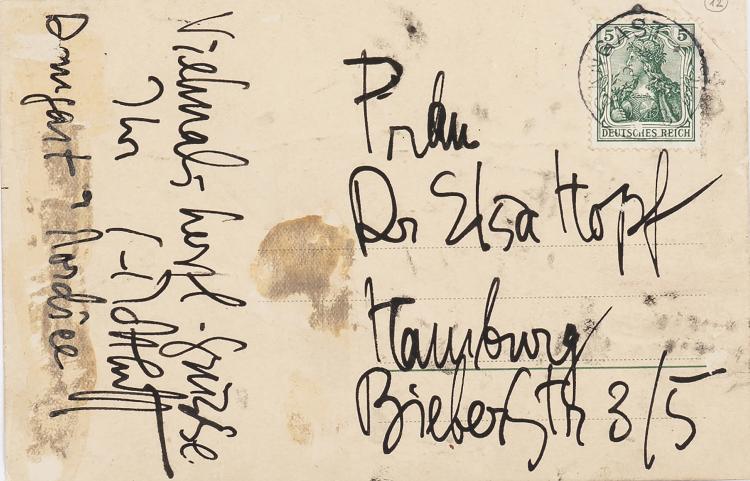 Vielmals herzl. Grüße.
Ihr
Dangast a Nordsee
Frau
Dr Elsa Hopf
Hamburg
Bieberstr 3/5
5 5
DEUTSCHES REICH
12